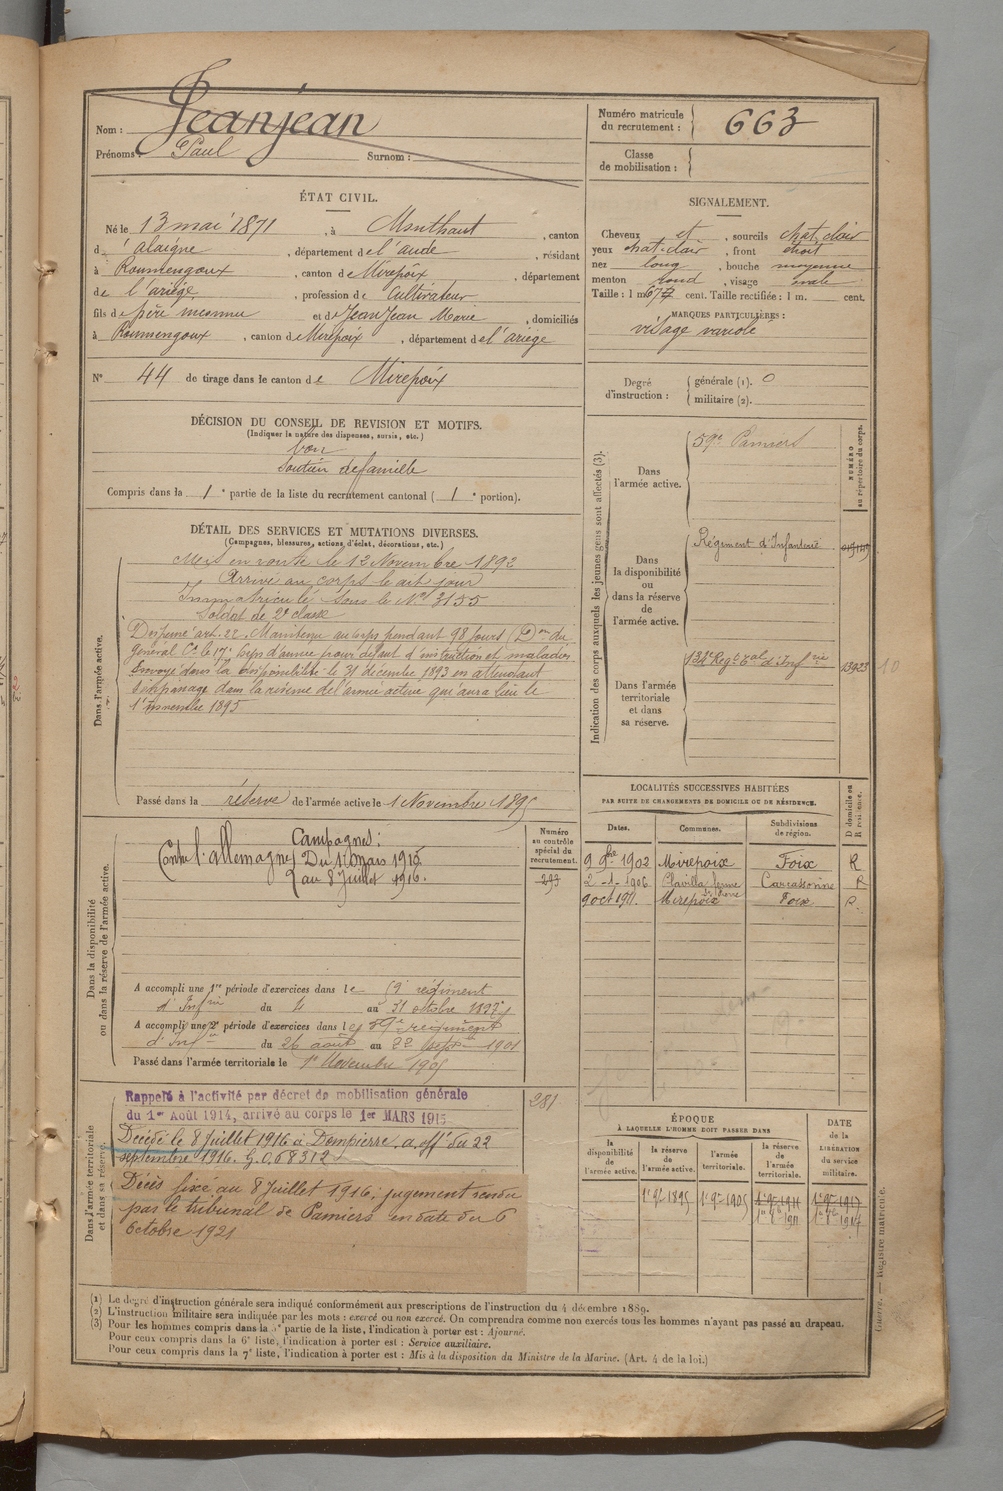 Nom : Jeanjean
Prénoms : Paul Surnom :
Numéro matricule du recrutement : 663
Classe de mobilisation :
ÉTAT CIVIL.
Né le 13 mai 1871, à Monthaut, canton
d' alaigne, département de l'aude, résidant
à Roumengoux, canton de Mirepoix, département
de l'ariège, profession de Cultivateur
fils de père inconnu et de JeanJean Marie, domiciliés
à Roumengoux, canton de Mirepoix, département de l'ariège
N° 44 de tirage dans le canton de Mirepoix
SIGNALEMENT.
Cheveux et, sourcils chat. clair
yeux chat-clair, front étroit
nez long, bouche moyenne
menton rond, visage ovale
Taille : 1 m. 67 cent. Taille rectifiée : 1 m. cent.
MARQUES PARTICULIÈRES :
visage variolé
Degré d'instruction : générale (1). 0
militaire (2).
DÉCISION DU CONSEIL DE REVISION ET MOTIFS.
(Indiquer la nature des dispenses, sursis, etc.)
bon
Soutien de famille
Compris dans la 1e partie de la liste du recrutement cantonal (1e portion).
DÉTAIL DES SERVICES ET MUTATIONS DIVERSES.
(Campagnes, blessures, actions d'éclat, décorations, etc.)
Dans l'armée active.
Mis en route le 12 Novembre 1892
Arrivé au corps le dit jour
Immatriculé sous le N° 3155
Soldat de 2e classe
Dispensé art. 22. Maintenu au corps pendant 98 jours (Don du
général Ct le 17e corps d'armée pour défaut d'instruction et maladie)
Envoyé dans la disponibilité le 31 décembre 1893 en attendant
son passage dans la réserve de l'armée active qui aura lieu le
1er novembre 1895
Passé dans la réserve de l'armée active le 1 Novembre 1895
Indication des corps auxquels les jeunes gens sont affectés (3).
NUMÉRO au répertoire du corps.
Dans l'armée active.
59e Pamiers
Dans la disponibilité ou dans la réserve de l'armée active.
Régiment d'Infanterie
Dans l'armée territoriale et dans sa réserve.
Regt d'Infrie 13923
10
LOCALITÉS SUCCESSIVES HABITÉES
PAR SUITE DE CHANGEMENTS DE DOMICILE OU DE RÉSIDENCE.
Dates. Communes. Subdivisions de région. D domicile ou R résidence.
9 9bre 1902 Mirepoix Foix R
2-1-1906 Plavilla Carcassonne R
9 oct 1911. Mirepoix Foix R.
Dans la disponibilité ou dans la réserve de l'armée active.
Numéro au contrôle spécial du recrutement.
293
Campagnes :
Contre l'Allemagne Du 1 Mars 1915
au 8 Juillet 1916.
A accompli une 1re période d'exercices dans le régiment
d'Infrie du 4 au 31 octobre
A accompli une 2e période d'exercices dans le régiment
d'Infie du 26 août au 22 1901
Passé dans l'armée territoriale le 1er Novembre 1905
Dans l'armée territoriale et dans sa réserve.
281
Rappelé à l'activité par décret de mobilisation générale
du 1er Août 1914, arrivé au corps le 1er MARS 1915.
Décédé le 8 Juillet 1916 à Dompierre, a. offel du 22
septembre 1916. G.O.68312
Décès fixé au 8 Juillet 1916 ; jugement rendu
par le tribunal de Pamiers en date du 6
Octobre 1921
ÉPOQUE
À LAQUELLE L'HOMME DOIT PASSER DANS
la disponibilité de l'armée active.
la réserve de l'armée active.
l'armée territoriale.
la réserve de l'armée territoriale.
DATE de la LIBÉRATION du service militaire.
1er 9bre 1895 1er 9bre 1905 1er 9bre 1911 1er 9bre 1917
(1) Le degré d'instruction générale sera indiqué conformément aux prescriptions de l'instruction du 4 décembre 1889.
(2) L'instruction militaire sera indiquée par les mots : exercé ou non exercé. On comprendra comme non exercés tous les hommes n'ayant pas passé au drapeau.
(3) Pour les hommes compris dans la 5e partie de la liste, l'indication à porter est : Ajourné.
Pour ceux compris dans la 6e liste, l'indication à porter est : Service auxiliaire.
Pour ceux compris dans la 7e liste, l'indication à porter est : Mis à la disposition du Ministre de la Marine. (Art. 4 de la loi.)
Guerre. — Registre matricule.